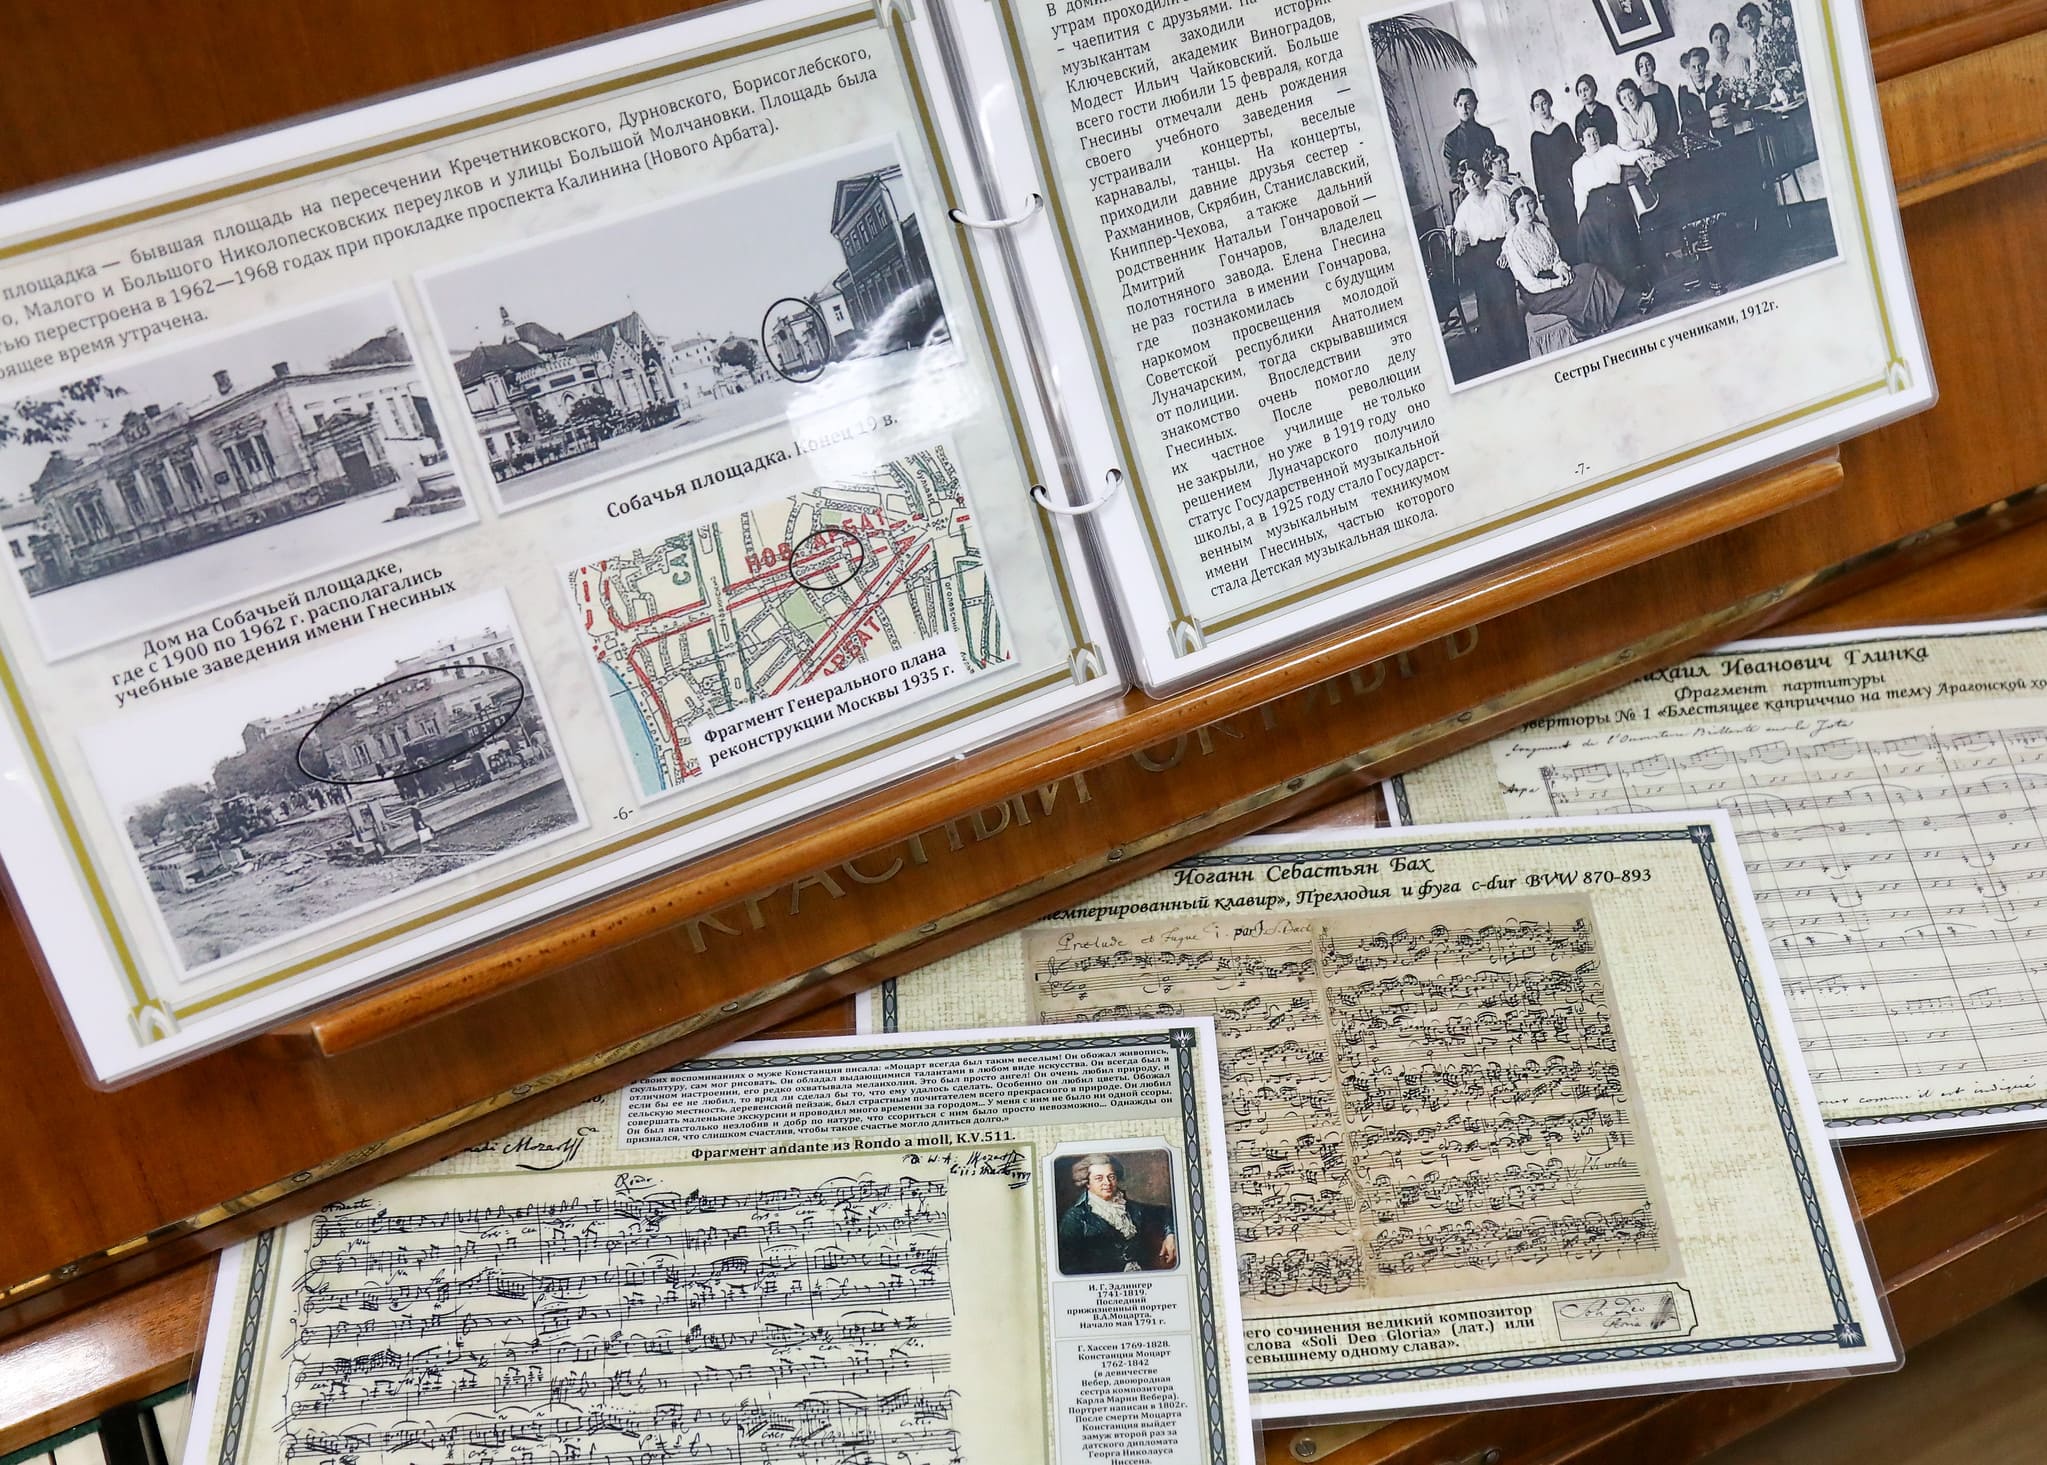 площадка — бывшая площадь на пересечении Кречетниковского, Дурновского, Борисоглебского,
Малого и Большого Николопесковских переулков и улицы Большой Молчановки. Площадь была
перестроена в 1962—1968 годах при прокладке проспекта Калинина (Нового Арбата).
время утрачена.
Дом на Собачьей площадке,
где с 1900 по 1962 г. располагались
учебные заведения имени Гнесиных
Собачья площадка. Конец 19 в.
НОВ. АРБАТ
АРБАТ
Фрагмент Генерального плана
реконструкции Москвы 1935 г.
-6-
утрам проходили
– чаепития с друзьями.
музыкантам заходили историк
Ключевский, академик Виноградов,
Модест Ильич Чайковский. Больше
всего гости любили 15 февраля, когда
Гнесины отмечали день рождения
своего учебного заведения —
устраивали концерты, веселые
карнавалы, танцы. На концерты,
приходили давние друзья сестер -
Рахманинов, Скрябин, Станиславский,
Книппер-Чехова, а также дальний
родственник Натальи Гончаровой —
Дмитрий Гончаров, владелец
полотняного завода. Елена Гнесина
не раз гостила в имении Гончарова,
где познакомилась с будущим
наркомом просвещения молодой
Советской республики Анатолием
Луначарским, тогда скрывавшимся
от полиции. Впоследствии это
знакомство очень помогло делу
Гнесиных. После революции
их частное училище не только
не закрыли, но уже в 1919 году оно
решением Луначарского получило
статус Государственной музыкальной
школы, а в 1925 году стало Государст-
венным музыкальным техникумом
имени Гнесиных, частью которого
стала Детская музыкальная школа.
Сестры Гнесины с учениками, 1912г.
-7-
КРАСНЫЙ ОКТЯБРЬ
Иванович Глинка
Фрагмент партитуры
увертюры № 1 «Блестящее каприччио на тему Арагонской
Fragment de l'Ouverture Brillante sur la Jota
comme il est indiqué
Иоганн Себастьян Бах
темперированный клавир», Прелюдия и фуга c-dur BVW 870-893
Prelude et Fugue par J. S. Bach
его сочинения великий композитор
слова «Soli Deo Gloria» (лат.) или
севышнему одному слава».
Soli Deo
Gloria
своих воспоминаниях о муже Констанция писала: «Моцарт всегда был таким веселым! Он обожал живопись,
скульптуру, сам мог рисовать. Он обладал выдающимися талантами в любом виде искусства. Он всегда был в
отличном настроении, его редко охватывала меланхолия. Это был просто ангел! Он очень любил природу, и
если бы ее не любил, то вряд ли сделал бы то, что ему удалось сделать. Особенно он любил цветы. Обожал
сельскую местность, деревенский пейзаж, был страстным почитателем всего прекрасного в природе. Он любил
совершать маленькие экскурсии и проводил много времени за городом... У меня с ним не было ни одной ссоры.
Он был настолько незлобив и добр по натуре, что ссориться с ним было просто невозможно... Однажды он
признался, что слишком счастлив, чтобы такое счастье могло длиться долго.»
Mozart
Фрагмент andante из Rondo a moll, K.V.511.
Rondo.
Andante
И. Г. Эдлингер
1741-1819.
Последний
прижизненный портрет
В.А.Моцарта.
Начало мая 1791 г.
Г. Хассен 1769-1828.
Констанция Моцарт
1762-1842
(в девичестве
Вебер, двоюродная
сестра композитора
Карла Марии Вебера).
Портрет написан в 1802г.
После смерти Моцарта
Констанция выйдет
замуж второй раз за
датского дипломата
Георга Николауса
Ниссена.